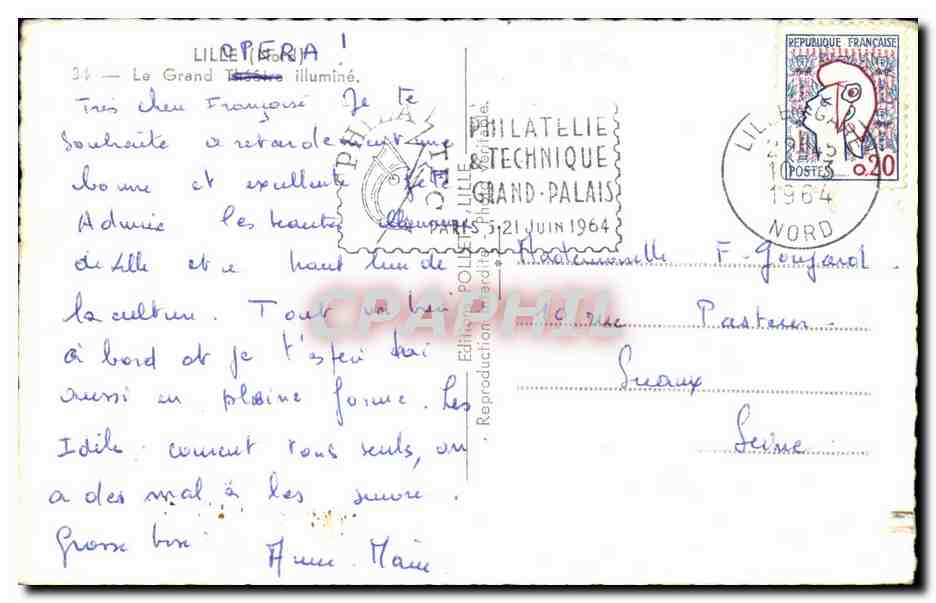 LILLE (Nord)
OPERA !
34 — Le Grand Théâtre illuminé.
Très chère Françoise Je te
souhaite a retardement une
bonne et excellente fête
Admire les hautes
de Lille et ce haut lieu de
la culture. Tout va bien
à bord et je t'espère toi
aussi en pleine forme. Les
Idile courent tous seuls, on
a des mal à les suivre.
Grosse bise
Anne Marie
PHILATEC
PHILATELIE
& TECHNIQUE
GRAND-PALAIS
PARIS 5-21 JUIN 1964
Editions POLLET, LILLE
Reproduction interdite - Photo véritable.
REPUBLIQUE FRANÇAISE
POSTES 0.20
LILLE GARE
1964
NORD
Mademoiselle F. Goujard
10 rue Pasteur
Sceaux
Seine
CPAPHIL